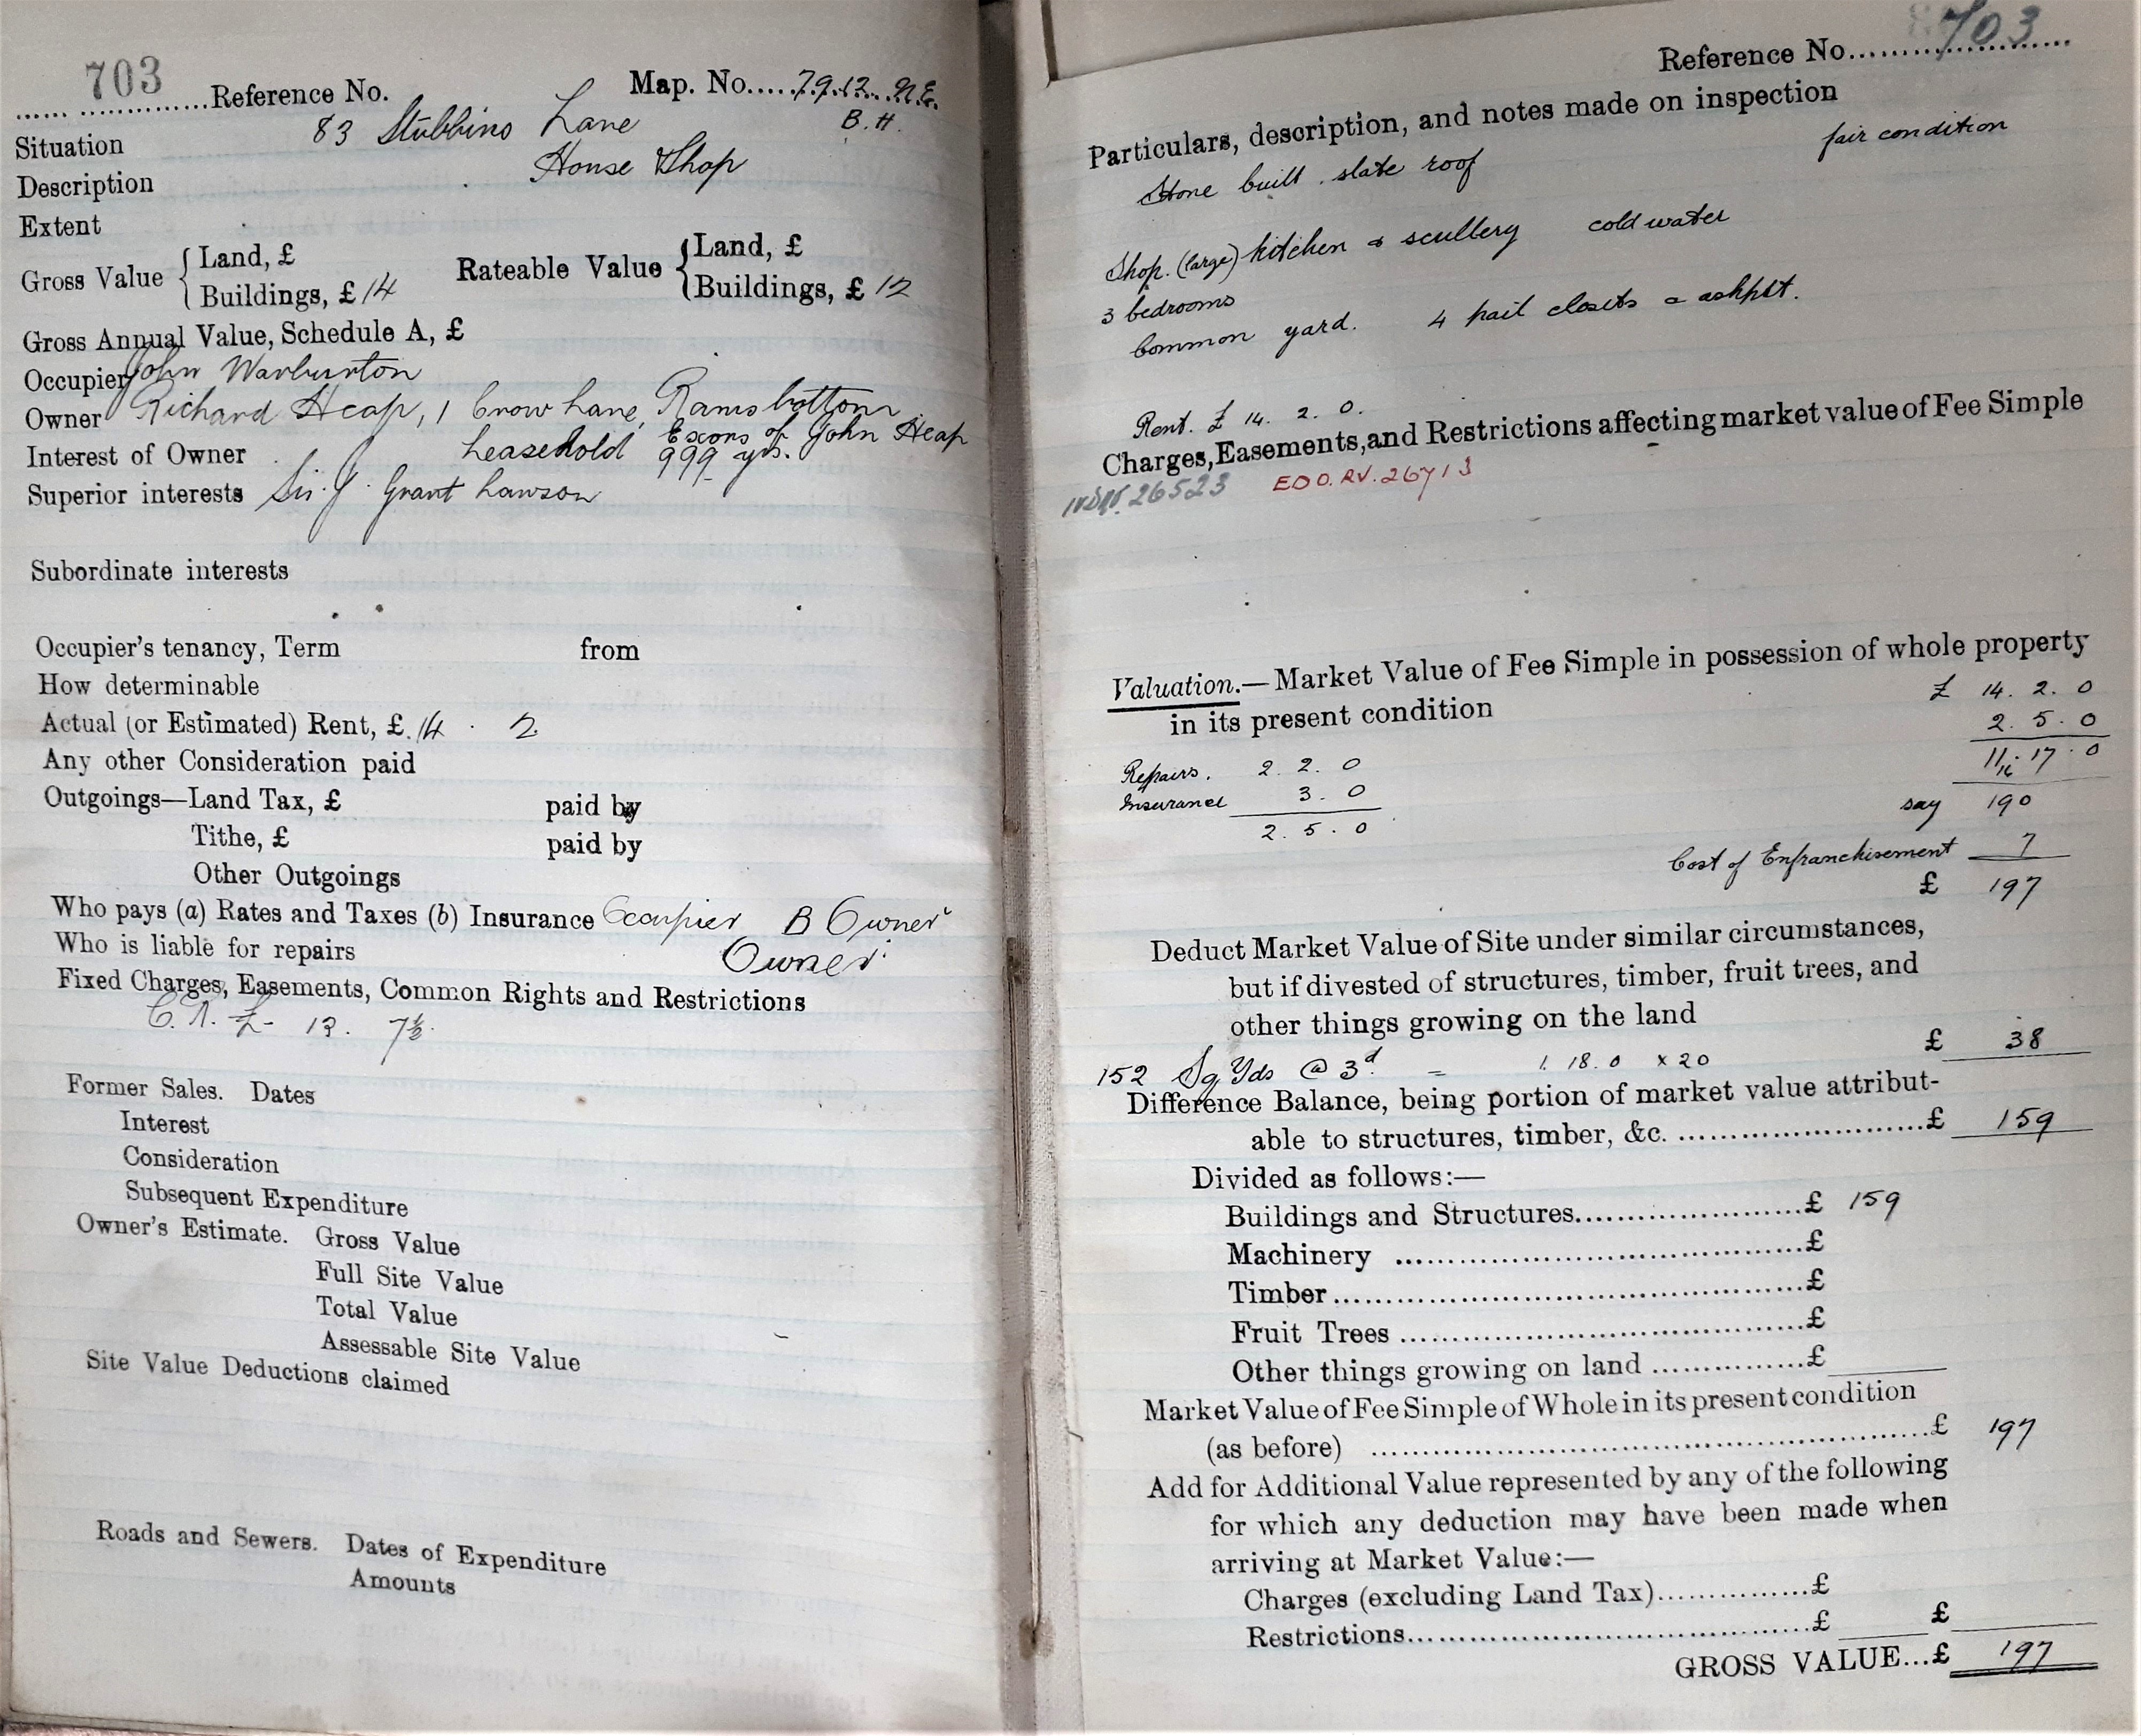 703 Reference No. Map. No. 79.12. N.E.
B.H.
Situation 83 Stubbins Lane
Description House & Shop
Extent
Gross Value { Land, £ Rateable Value { Land, £
Buildings, £ 14 Buildings, £ 12
Gross Annual Value, Schedule A, £
Occupier John Warburton
Owner Richard Heap, 1 Crow Lane, Ramsbottom
Exors of John Heap
Interest of Owner Leasehold 999 yrs.
Superior interests Sir J. Grant Lawson
Subordinate interests
Occupier's tenancy, Term from
How determinable
Actual (or Estimated) Rent, £ 14 . 2
Any other Consideration paid
Outgoings—Land Tax, £ paid by
Tithe, £ paid by
Other Outgoings
Who pays (a) Rates and Taxes (b) Insurance Occupier B Owner
Who is liable for repairs Owner
Fixed Charges, Easements, Common Rights and Restrictions
C.R. £- 13. 7½
Former Sales. Dates
Interest
Consideration
Subsequent Expenditure
Owner's Estimate. Gross Value
Full Site Value
Total Value
Assessable Site Value
Site Value Deductions claimed
Roads and Sewers. Dates of Expenditure
Amounts
Reference No. 703
Particulars, description, and notes made on inspection
Stone built . slate roof fair condition
Shop. (large) kitchen & scullery cold water
3 bedrooms
Common yard. 4 pail closets & ashpit.
Rent. £ 14. 2. 0.
Charges, Easements, and Restrictions affecting market value of Fee Simple
26523 EDO. RV. 26713
Valuation.—Market Value of Fee Simple in possession of whole property
in its present condition £ 14. 2. 0
2. 5. 0
Repairs. 2. 2. 0 11. 17. 0
16
Insurance 3. 0 say 190
2. 5. 0
Cost of Enfranchisement 7
£ 197
Deduct Market Value of Site under similar circumstances,
but if divested of structures, timber, fruit trees, and
other things growing on the land £ 38
152 Sq Yds @ 3d. = 1. 18. 0 x 20
Difference Balance, being portion of market value attribut-
able to structures, timber, &c. £ 159
Divided as follows:—
Buildings and Structures £ 159
Machinery £
Timber £
Fruit Trees £
Other things growing on land £
Market Value of Fee Simple of Whole in its present condition
(as before) £ 197
Add for Additional Value represented by any of the following
for which any deduction may have been made when
arriving at Market Value:—
Charges (excluding Land Tax) £
Restrictions £ £
GROSS VALUE...£ 197